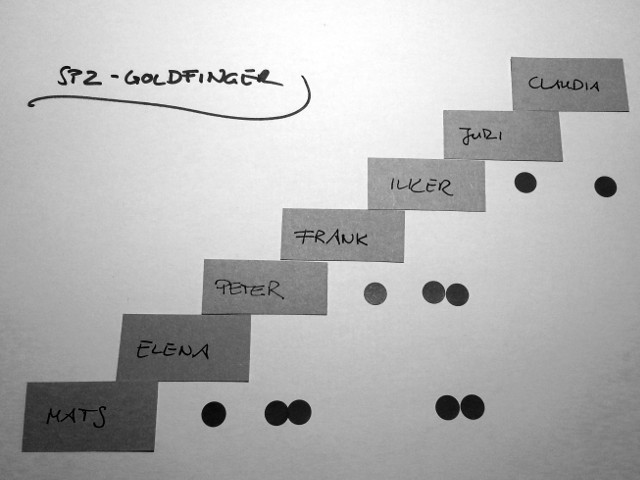 SPZ-GOLDFINGER
CLAUDIA
JURI
ILKER
FRANK
PETER
ELENA
MATS